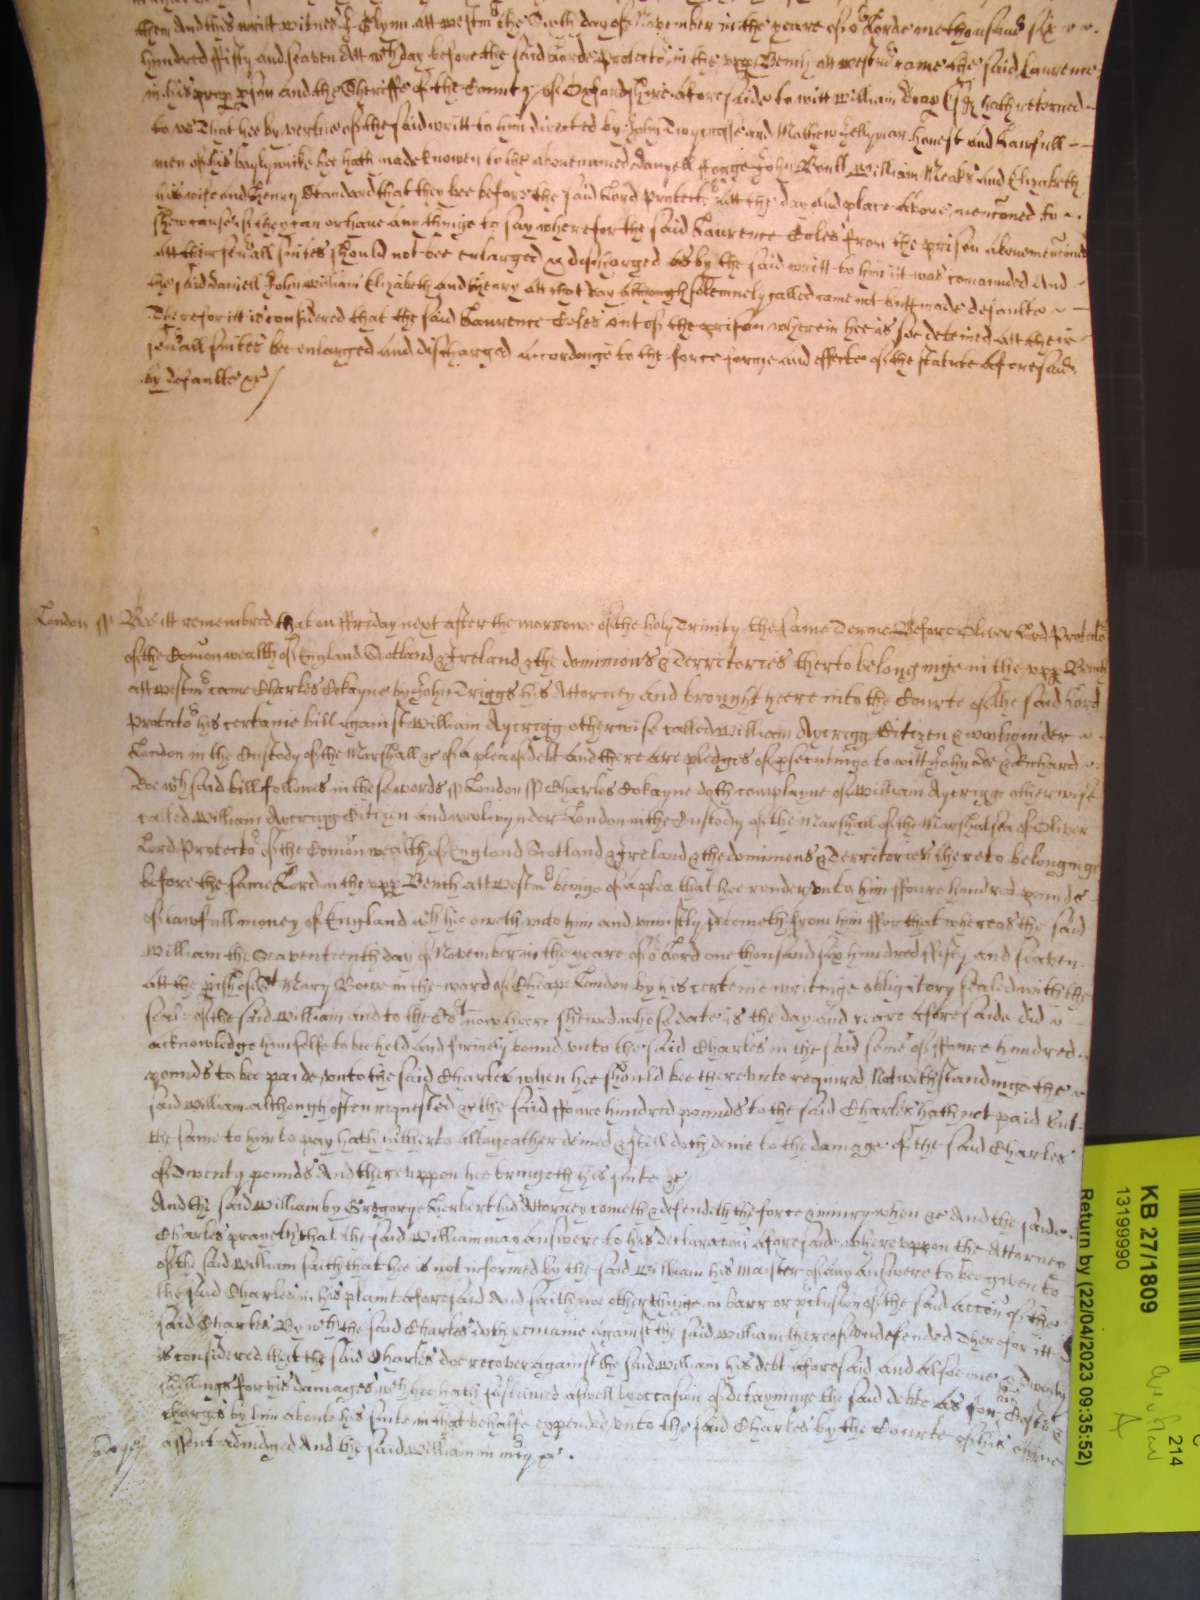 them And this writt witnes J Glynn att westmr the Sixth day of November in the yeare of or Lorde one thousand six
hundred fifty and seaven Att wch day before the said Lorde Protector in the vpp Bench att westmr came the said Laurence
in his prop pson and the Sheriffe of the County of Oxfordshire aforesaide to witt William Esqr hath returned
to vs That hee by vertue of the said writt to him directed by John and Mathew Jellyman honest and Lawfull
men of his baylywike hee hath made knowen to the abovenamed danyell John Bull William Meaks and Elizabeth
his wife and Henry Standard that they bee before the said Lord Protector att the day and place above mencioned to
shew cause if they can or have any thinge to say wherefore the said Laurence Coles from the prison abovemencioned
att their sevall suites should not bee enlarged & discharged as by the said writt to him it was comaunded And
the said daniell John William Elizabeth and Henry att that day although solemnely called came not butt made defaulte
Therefore itt is considered that the said Laurence Coles out of the prison wherein hee is soe deteined att their
sevall suites bee enlarged and discharged accordinge to the force forme and effecte of the statute aforesaid
by defaulte &c
London ss Bee itt remembred that on ffriday next after the morrowe of the holy Trinity the same Terme Before Oliver Lord Protector
of the Comonwealth of England Scotland & Ireland & the dominions & Territories therto belonginge in the vpp Bench
att westmr came Charles Cokayne by John Triggs his Attorney and brought heere into the Courte of the said Lord
Protector his certaine bill against William Ayerigg otherwise called William Ayerigg Citizen & woolwinder
London in the Custody of the Marshall &c of a plea of debt And there are pledges of psecutinge to witt John Doe & Richard
Roe wch said bill follows in these words ss London ss Charles Cokayne doth complayne of William Ayerigge otherwise
called William Ayerigg Citizen and woolwynder London in the Custody of the Marshall of the Marshalsea of Oliver
Lord Protector of the Comonwealth of England Scotland & Ireland & the dominions & Territories thereto belonginge
before the same Lord in the vpp Bench att westmr beinge of a plea that hee render vnto him ffoure hundred pounds
of lawfull money of England wch hee oweth vnto him and vniustly deteineth from him ffor that whereas the said
William the Seaventeenth day of November in the yeare of or Lord one thousand six hundred fifty and seaven
att the pish of St Mary Bowe in the ward of Cheape London by his certeine writinge obligatory sealed with the
seale of the said William and to the Cort now heere shewed whose date is the day and yeare aforesaide did
acknowledge himselfe to bee held and firmely bound vnto the said Charles in the said some of ffoure hundred
pounds to bee paide vnto the said Charles when hee should bee therevnto required Notwithstandinge the
said William although often requested &c the said ffoure hundred pounds to the said Charles hath not paid but
the same to him to pay hath hitherto altogeather denied & still doth denie to the damage of the said Charles
of Twenty pounds And therevppon hee bringeth his suite &c
And the said William by Gregorye Herbert his Attorney cometh & defendeth the force & iniury when &c And the said
Charles prayeth that the said William may answere to his declaracon aforesaide wherevppon the Attorney
of the said William saith that hee is not informed by the said William his maister of any answere to bee given to
the said Charles in his plaint aforesaid And saith noe other thinge in barr or pclusion of the said accon of the
said Charles By wch the said Charles doth remaine against the said William thereof vndefended Therefore itt
is considered that the said Charles doe recover against the said William his debt aforesaid and alsoe Twenty
shillings for his damages wch hee hath susteined aswell by occasion of detayninge the said debte as for his Costs &
charges by him aboute his suite in that behalfe expended vnto the said Charles by the Courte of his owne
assent adiudged And the said William in mcy &c
KB 27/1809
13199990
Return by (22/04/2023 09:35:52)
214